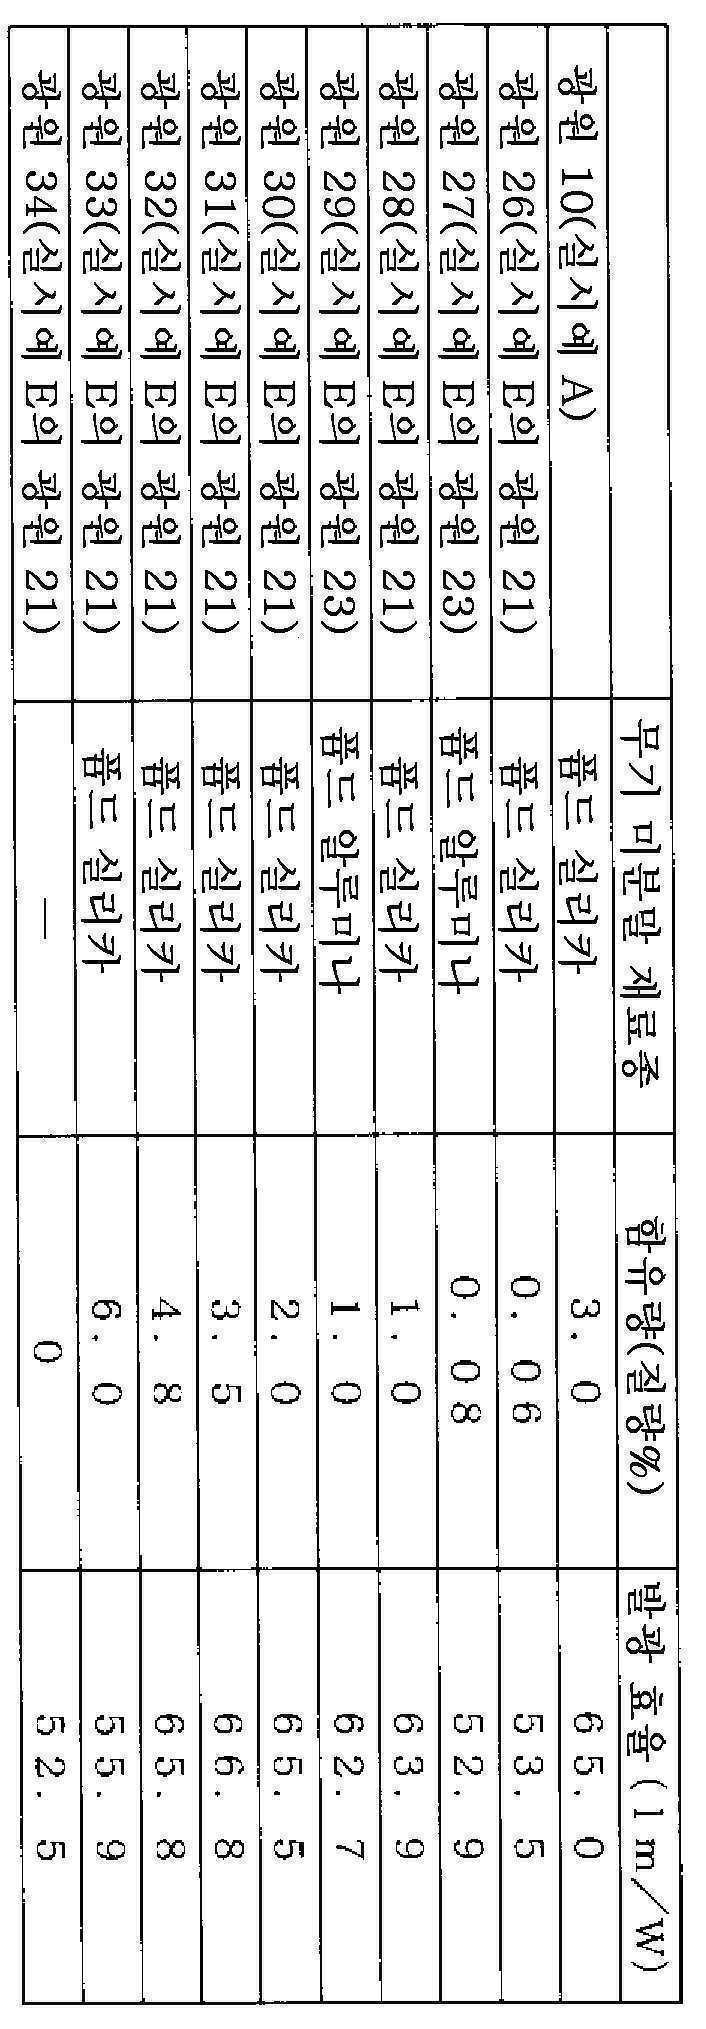 무기 미분말 재료종 함유량(질량%) 발광 효율 (lm/W)
광원 10(실시예 A) 퓸드 실리카 3.0 65.0
광원 26(실시예 E의 광원 21) 퓸드 실리카 0.06 53.5
광원 27(실시예 E의 광원 23) 퓸드 알루미나 0.08 52.9
광원 28(실시예 E의 광원 21) 퓸드 실리카 1.0 63.9
광원 29(실시예 E의 광원 23) 퓸드 알루미나 1.0 62.7
광원 30(실시예 E의 광원 21) 퓸드 실리카 2.0 65.5
광원 31(실시예 E의 광원 21) 퓸드 실리카 3.5 66.8
광원 32(실시예 E의 광원 21) 퓸드 실리카 4.8 65.8
광원 33(실시예 E의 광원 21) 퓸드 실리카 6.0 55.9
광원 34(실시예 E의 광원 21) — 0 52.5